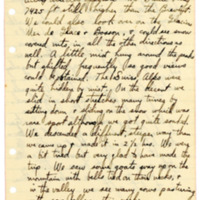 7425 ft still higher than the Brevent
We could also look over on the Glacier
Mer de Glace & Bosson, & could see snow
covered mts, in all the other directions as
well. A little mist hung around the peaks
but shifted frequently so good views
could be obtained. The Swiss Alps were
quite hidden by mist. On the decent we
slid in short stretches many times by
sitting down & sliding on the snow which was
great sport although we got quite soaked.
We descended a different, steeper way than
we came up & made it in 2½ hrs. We were
a bit tired but very glad to have made the
trip. We saw some goats way up on the
mountain with bells tied on their necks, &
in the valley we see many cows pasturing